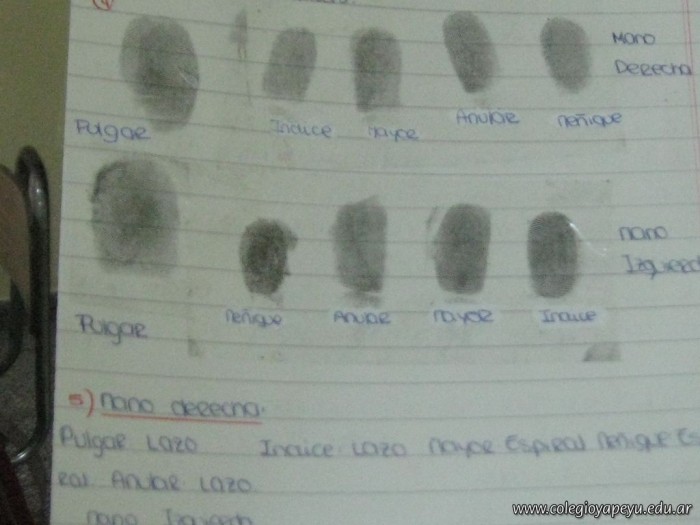 4
Mano
Derecha
Pulgar Indice Mayor Anular Meñique
Mano
Izquierda
Pulgar Meñique Anular Mayor Indice
5) Mano derecha.
Pulgar Lazo Indice Lazo Mayor Espiral Meñique Es
ral Anular Lazo
Mano Izquierda
www.colegioyapeyu.edu.ar